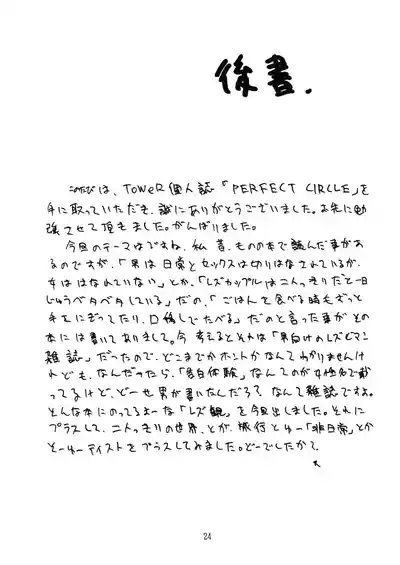 後書.
このたびは、TOWER個人誌「PERFECT CIRCLE」を
手に取っていただき、誠にありがとうございました。お先に勉
強させて頂きました。がんばりました。
今回のテーマはですね、私、昔、ものの本で読んだ事があ
るのですが、「男は日常とセックスは切りはなされているが、
女ははなれていない」とか、「レズカップルは二人っきりだと一日
じゅうベタベタしている」だの、「ごはんを食べる時もずっと
手をにぎってたり、口移しでたべる」だのと言った事がその
本には書いてありまして。今考えるとそれは「男向けのレズビアン
雑誌」だったので、どこまでホントかなんてわかりませんけ
れども、なんだったら、「告白体験」なんてのが女性名で載
ってるけど、どーせ男が書いたんだろ?なんて雑誌ですよ。
そんな本にのってるよーな「レズ観」を今回出しました。それに
プラスして、二人っきりの世界、とか、旅行とゆー「非日常」とか
そーゆーテイストをプラスしてみました。どーでしたか?
24